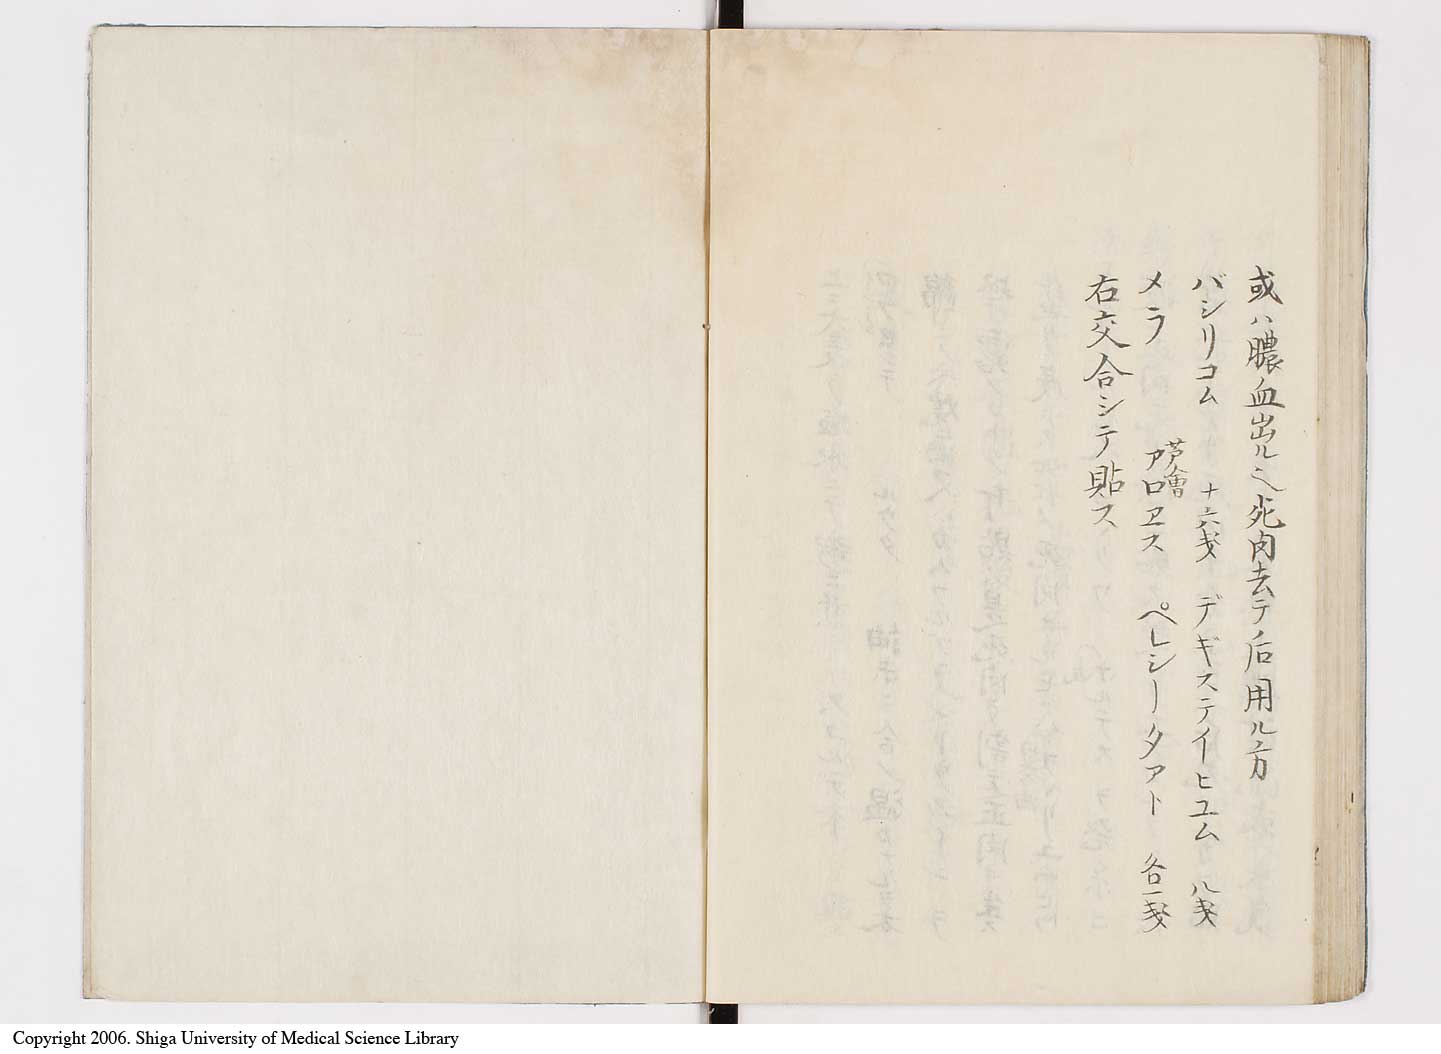 或ハ膿血出ルヘ死肉去テノ后用ル方
バシリコム 十六戔 デギステイヒユム 八戔
メラ アロヱス 芦會 ペレシータアト 各一戔
右交合シテ貼ス
Copyright 2006. Shiga University of Medical Science Library